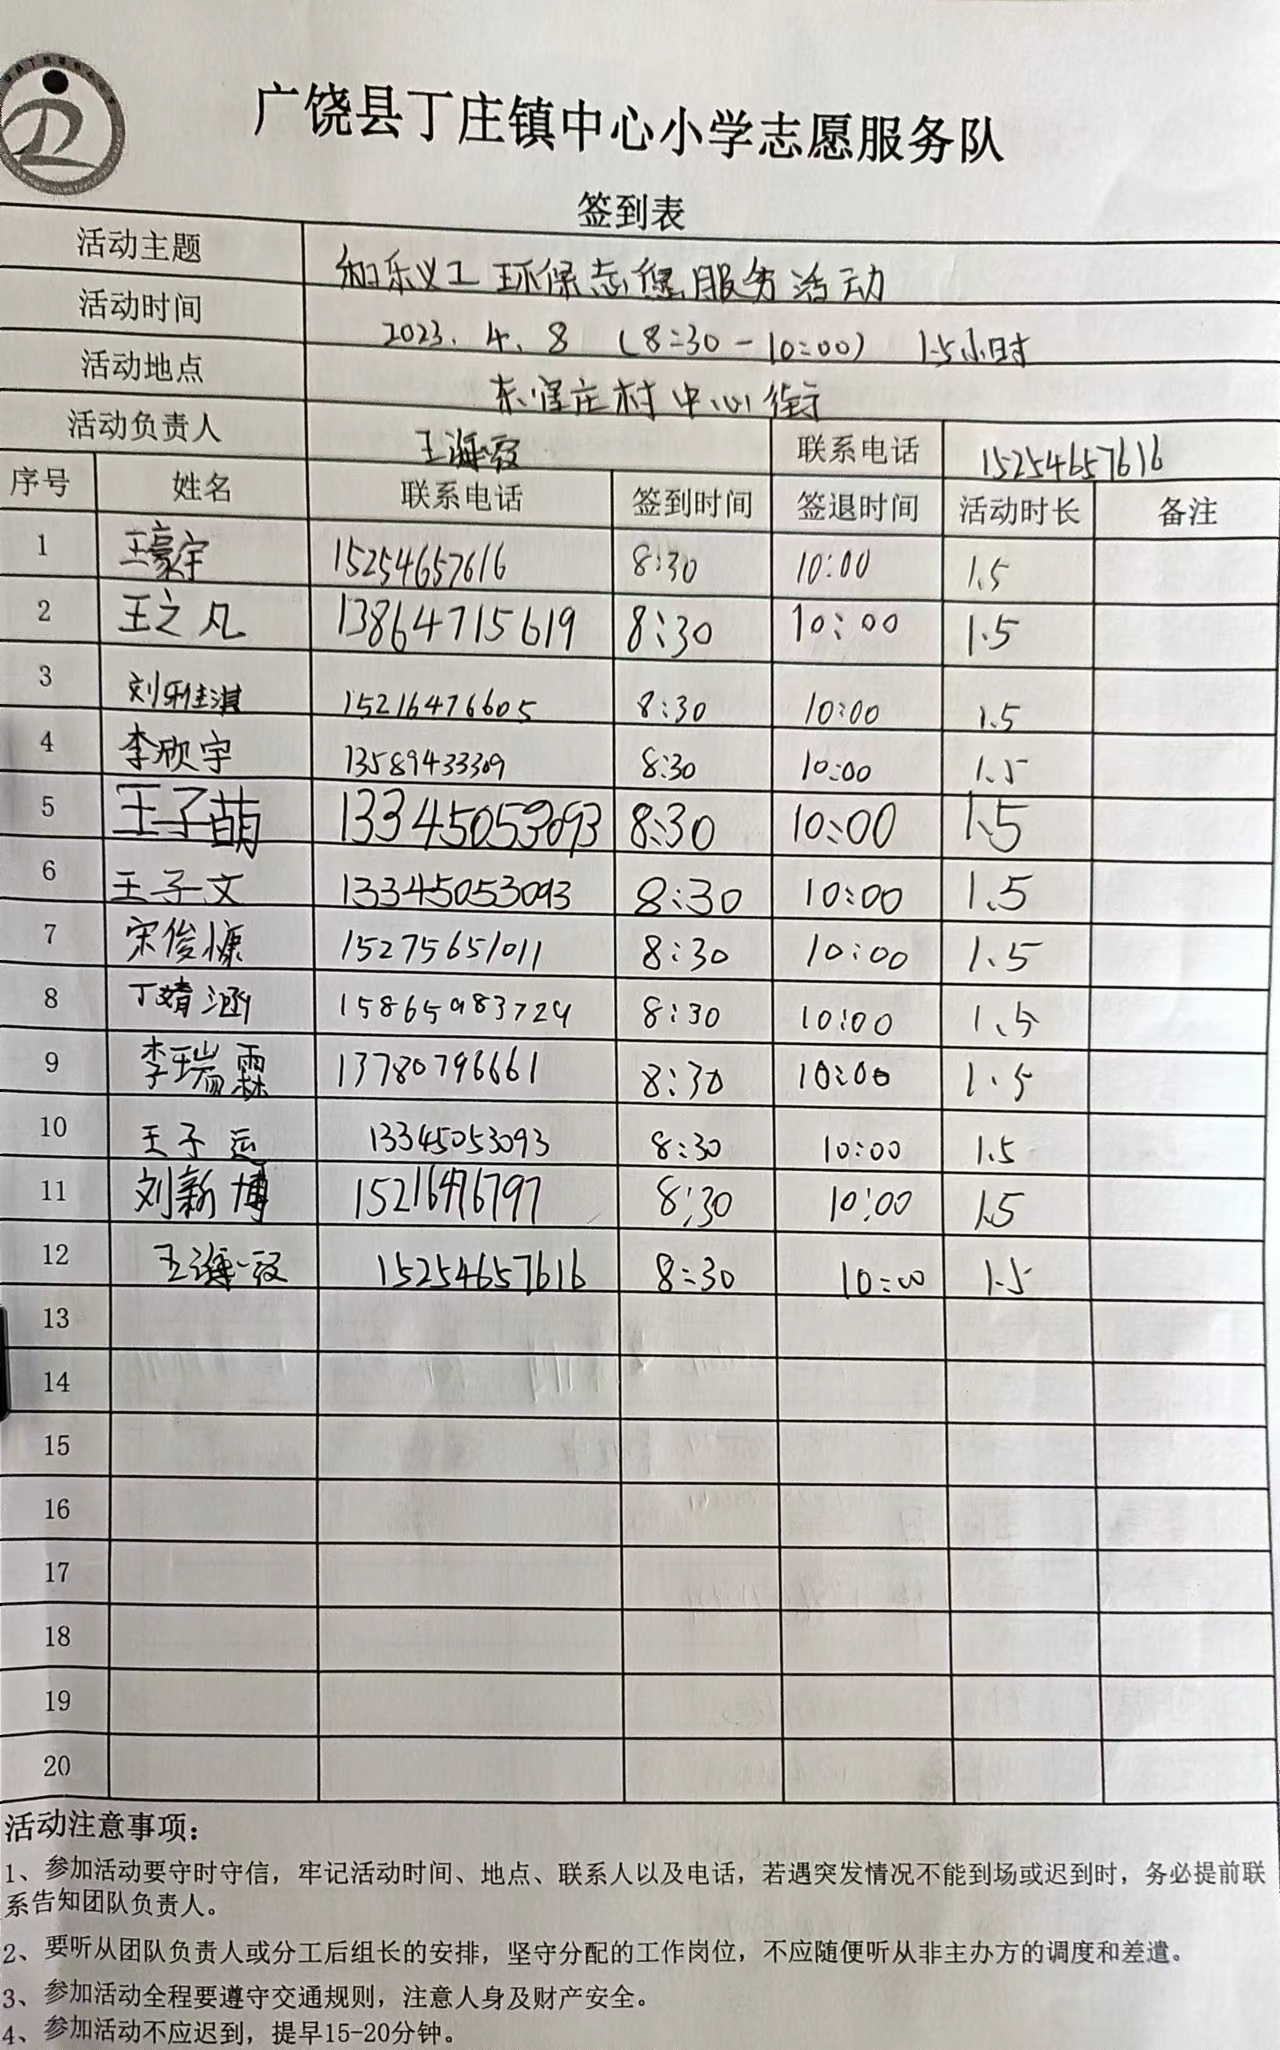 广饶县丁庄镇中心小学志愿服务队
签到表
活动主题 和乐义工环保志愿服务活动
活动时间 2023.4.8 (8:30-10:00) 1.5小时
活动地点 东崔庄村中心街
活动负责人 王 联系电话 15254657616
序号 姓名 联系电话 签到时间 签退时间 活动时长 备注
1 王豪宇 15254657616 8:30 10:00 1.5
2 王之凡 13864715619 8:30 10:00 1.5
3 刘雅淇 15216476605 8:30 10:00 1.5
4 李欣宇 13589433309 8:30 10:00 1.5
5 王子萌 13345053093 8:30 10:00 1.5
6 王子文 13345053093 8:30 10:00 1.5
7 宋俊慷 15275651011 8:30 10:00 1.5
8 丁婧涵 15865983724 8:30 10:00 1.5
9 李瑞霖 13780796661 8:30 10:00 1.5
10 王子 13345053093 8:30 10:00 1.5
11 刘新博 15216476797 8:30 10:00 1.5
12 王 15254657616 8:30 10:00 1.5
13
14
15
16
17
18
19
20
活动注意事项:
1、参加活动要守时守信，牢记活动时间、地点、联系人以及电话，若遇突发情况不能到场或迟到时，务必提前联
系告知团队负责人。
2、要听从团队负责人或分工后组长的安排，坚守分配的工作岗位，不应随便听从非主办方的调度和差遣。
3、参加活动全程要遵守交通规则，注意人身及财产安全。
4、参加活动不应迟到，提早15-20分钟。